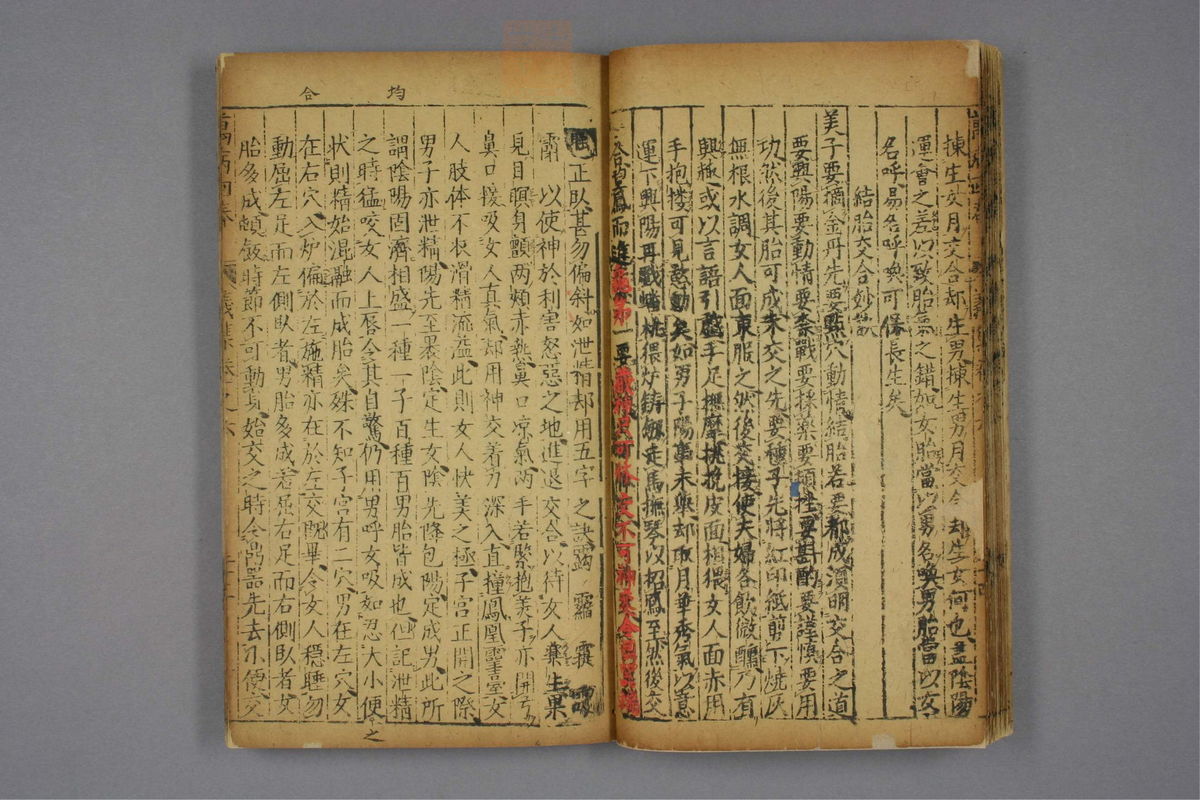 揀生女月交合却生男揀生男月交合却生女何也盖陰陽
運會之差以致胎氣之錯如女胎當以男名喚男胎當以女
名呼易名呼喚可保長生矣
結胎交合妙歌
美子要摘金丹先要點穴動情結胎若要都成須明交合之道
要興陽要動情要柰戰要採藥要頓性要斟酌要謹慎要用
功然後其胎可成未交之先要種子先將紅印紙剪下燒灰
無根水調女人面東服之然後交接使夫婦各飲微醺乃有
興極或以言語引盤手足撫摩挑挽皮面相猥女人面赤用
手抱摟可見敢動矣如男子陽事未興却取月華秀氣以意
運下興陽再戰蟠桃猥炉鑄劍走馬撫琴以招鳳至然後交
鳳而進 一要 不可
均 合
正臥甚勿偏斜如泄精却用五字之訣
以使神於利害怒惡之地進退交合以待女人藥生果
見目瞑身顫兩頰赤熱鼻口凉氣兩手若緊抱美子亦開
鼻口接吸女人真氣却用神交着力深入直撞鳳凰靈室女
人肢体不收滑精流溢此則女人快美之極子宮正開之際
男子亦泄精陽先至裹陰定生女陰先降包陽定成男此所
謂陰陽固濟相盛一種一子百種百男胎皆成也但記泄精
之時猛咬女人上唇令其自驚仍用男呼女吸如忍大小便之
狀則精始混融而成胎矣殊不知子宮有二穴男在左穴女
在右穴入炉偏於左施精亦在於左交既畢令女人穩睡勿
動屈左足而左側臥者男胎多成若屈右足而右側臥者女
胎多成頓飯時節不可動身始交之時令器先去小便交